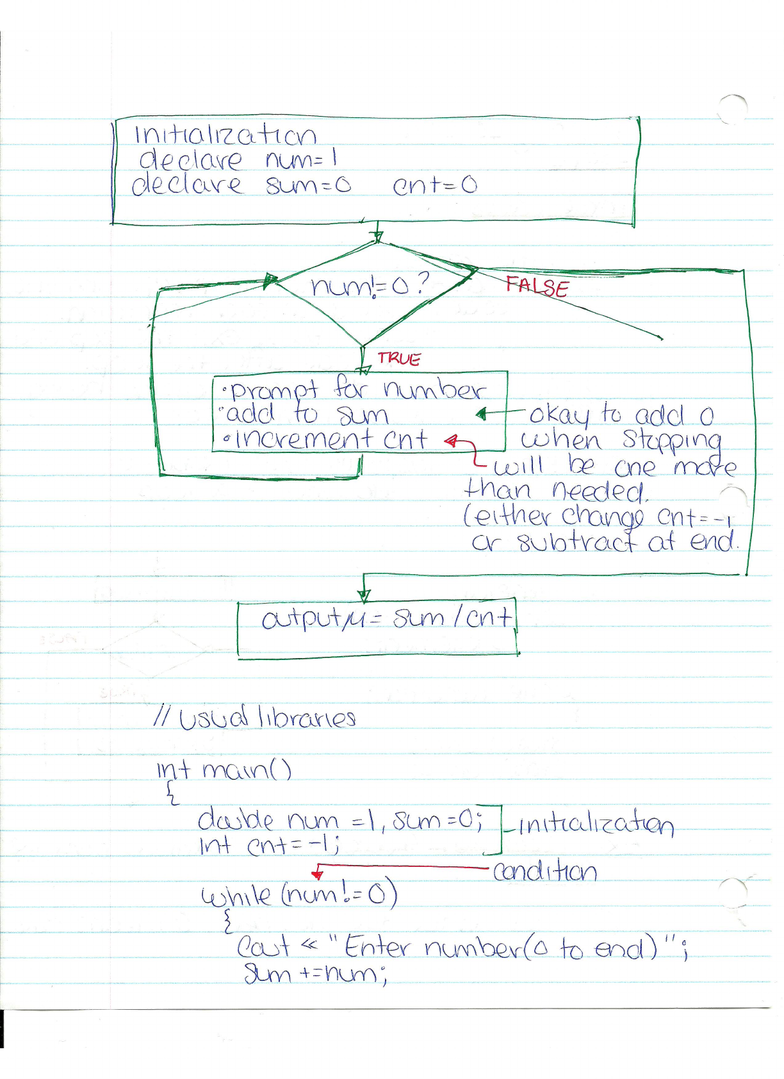 Initialization
declare num=1
declare sum=0 cnt=0
num!=0?
FALSE
TRUE
•prompt for number
•add to sum
•increment cnt
okay to add 0
when stopping
will be one more
than needed.
(either change cnt=-1
or subtract at end.
output μ= sum/cnt
// usual libraries
int main()
{
double num =1, sum=0;
int cnt=-1;
initialization
condition
while (num!=0)
{
cout << "Enter number(0 to end)";
sum +=num;